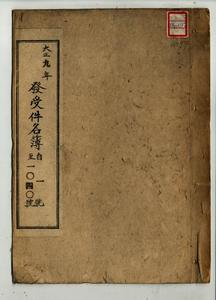 大正九年
發受件名簿
自一號
至一〇四〇號